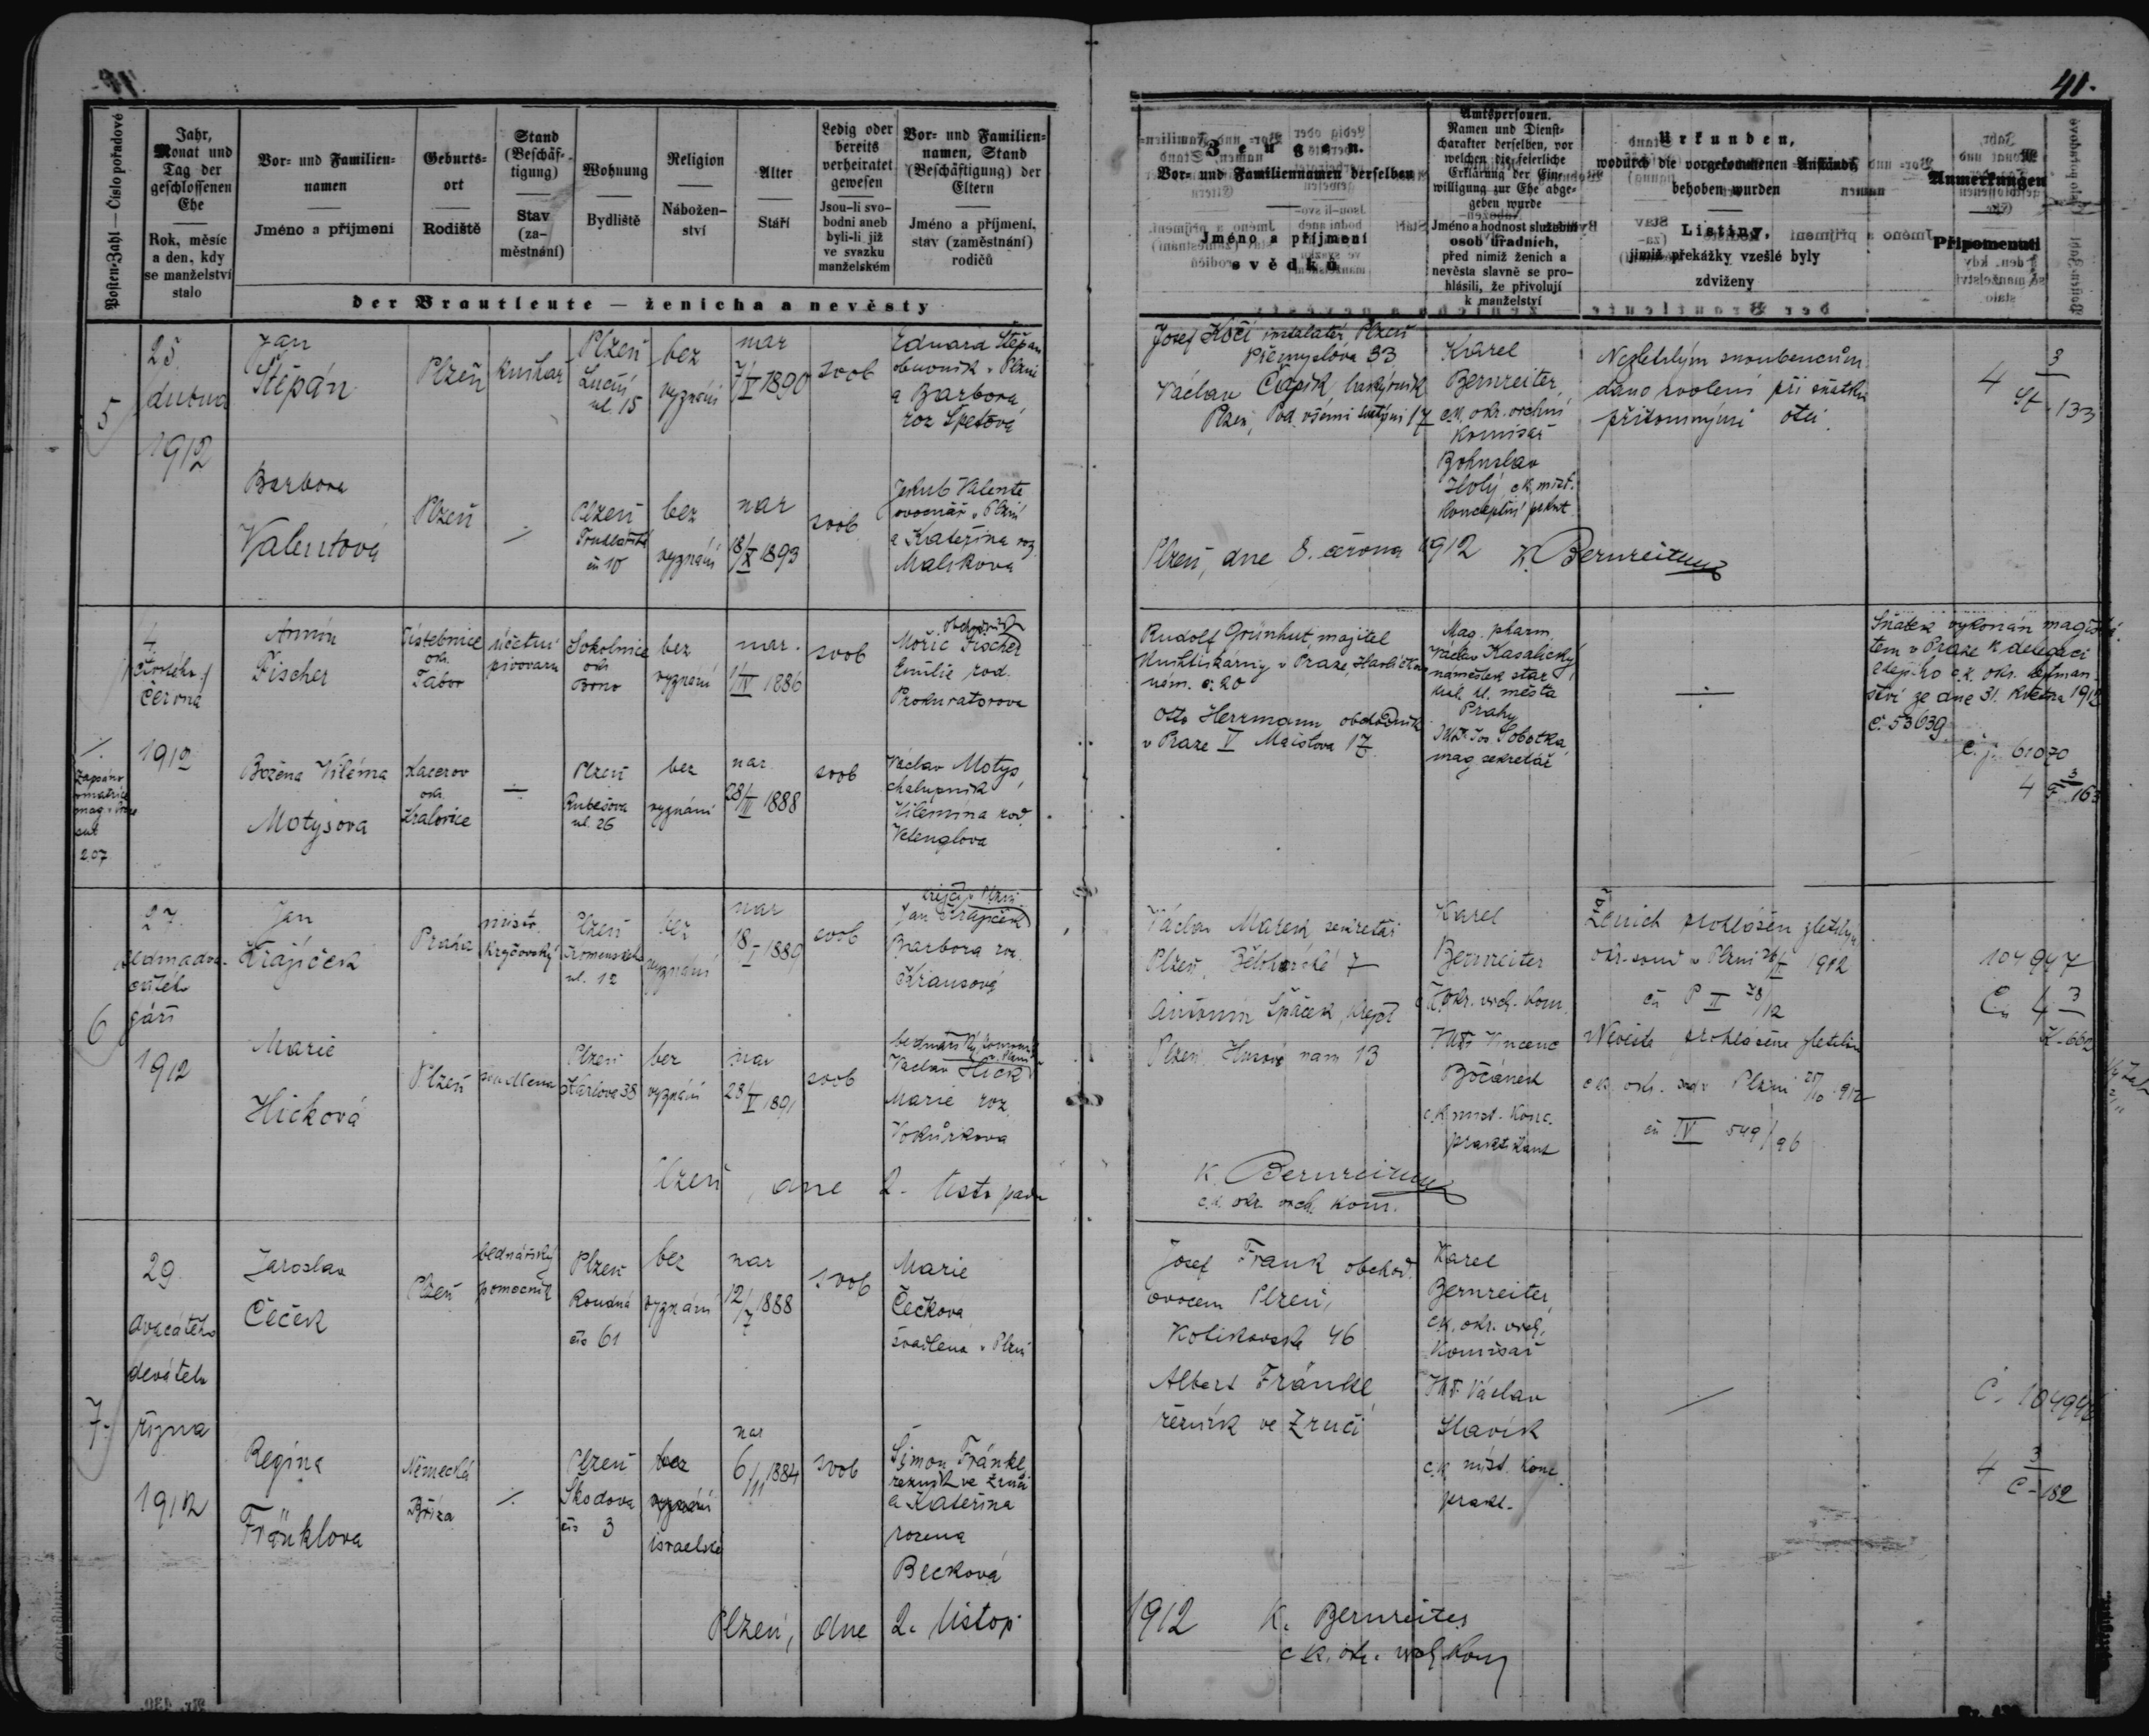 41.
Posten-Zahl — Číslo pořadové
Jahr, Monat und Tag der geschlossenen Ehe
Rok, měsíc a den, kdy se manželství stalo
Vor- und Familiennamen
Jméno a příjmení
Geburtsort
Rodiště
Stand (Beschäftigung)
Stav (zaměstnání)
Wohnung
Bydliště
Religion
Náboženství
Alter
Stáří
Ledig oder bereits verheiratet gewesen
Jsou-li svobodni aneb byli-li již ve svazku manželském
Vor- und Familiennamen, Stand (Beschäftigung) der Eltern
Jméno a příjmení, stav (zaměstnání) rodičů
der Brautleute — ženicha a nevěsty
Zeugen.
Vor- und Familiennamen derselben
Jméno a příjmení
svědků
Amtspersonen.
Namen und Dienstcharakter derselben, vor welchen die feierliche Erklärung der Einwilligung zur Ehe abgegeben wurde
Jméno a hodnost služební osob úradních, před nimiž ženich a nevěsta slavně se prohlásili, že přivolují k manželství
Urkunden,
wodurch die vorgekommenen Anstände behoben wurden
Listiny,
jimiž překážky vzešlé byly zdviženy
Anmerkungen
Připomenutí
5
25.
dubna
1912
Jan
Štěpán
Plzeň
knihař
Plzeň
Luční
ul. 15
bez
vyznání
nar
7/V 1890
svob
Eduard Štěpán
obuvník v Plzni
a Barbora
roz Špetová
Barbora
Valentová
Plzeň
Plzeň
čís 10
bez
vyznání
nar
18/X 1893
svob
Jakub Valenta
v Plzni
a Kateřina roz
Malikova
Josef Kočí instalatér, Plzeň
Přemyslova 33
Václav Čapík
Plzeň, Pod všemi svatými 17
Karel
Bernreiter,
c.k. okr. vrchní
komisař
Bohuslav
Holý, c.k. míst.
konceptní prakt.
Nezletilým snoubencům
dáno svolení při sňatku
přítomnými otci.
4 3/Št-133
Plzeň, dne 8. června 1912 K. Bernreiter
4.
čtvrtého
června
1912
Zapsáno
v matrice
mag. v Praze
sub
207
Armin
Fischer
Jistebnice
okr.
Tábor
účetní
pivovaru
Sokolnice
okr.
Brno
bez
vyznání
nar.
1/IV 1886
svob
obchodník
Mořic Fischer
Emilie rod.
Prokuratorova
Božena Viléma
Motysova
Kacerov
okr.
Kralovice
Plzeň
Rubešova
ul. 26
bez
vyznání
nar.
28/III 1888
svob
Václav Motys,
chalupník
Vilemína rod.
Velenglova
Rudolf Grünhut, majitel
v Praze, Havlíčkovo
nám. č. 20
Otto Herrmann obchodník
v Praze V Maislova 17
Mag. pharm.
Václav Kasalický,
náměstek star.
král. hl. města
Prahy
JUDr. Jos. Sobotka,
mag. sekretář
Sňatek vykonán magistrá
tem v Praze k delegaci
zdejšího c.k. okr. hejtman
ství ze dne 31. května 1912
č. 53639.
č.j. 61070
4 3/F-163
6
27.
září
1912
Jan
Krájíček
Praha
mistr
krejčovský
Plzeň
Komenského
ul. 12
bez
vyznání
nar
18/I 1889
svob
krejčí v Plzni
Jan Krajíček
Barbora roz.
Krausová
Marie
Hicková
Plzeň
švadlena
Plzeň
Karlova 38
bez
vyznání
nar
28/V 1891
svob
Václav Hick
Marie roz
Vokůrkova
Václav Marek sekretář
Plzeň, Bělohorská 7
Antonín Špaček, krejčí
Plzeň, Husovo nám 13
Karel
Bernreiter
c.k. okr. vrch. kom.
JUDr Vincenc
Bočánek
c.k. míst. konc.
praktikant
Ženich prohlášen zletilým
okr. soud v Plzni 1912
čís P II 28/12
Nevěsta prohlášena zletilou
c.k. okr. soud v Plzni 25/10 912
čís IV 549/96
104947
Čís 4 3/K-662
Plzeň, dne 2. listopadu
K. Bernreiter
c.k. okr. vrch. kom.
7.
29.
dvacátého
devátého
října
1912
Jaroslav
Čeček
Plzeň
bednářský
pomocník
Plzeň
Roudná
čís 61
bez
vyznání
nar
12/7 1888
svob
Marie
Čečková,
švadlena v Plzni
Regina
Fränklova
Německá
Bříza
Plzeň
Škodova
čís 3
bez
vyznání
israelské
nar
6/11 1884
svob
Šimon Fränkl,
řezník ve Zruči
a Kateřina
rozena
Becková
Josef Frank obchod.
ovocem Plzeň,
Kotikovská 46
Albert Fränkl,
řezník ve Zruči
Karel
Bernreiter,
c.k. okr. vrch.
komisař
JUDr. Václav
Slavík
c.k. míst. konc.
prakt.
4 3/C-182
Plzeň, dne 2. listop.
1912 K. Bernreiter
c.k. okr. vrch. kom